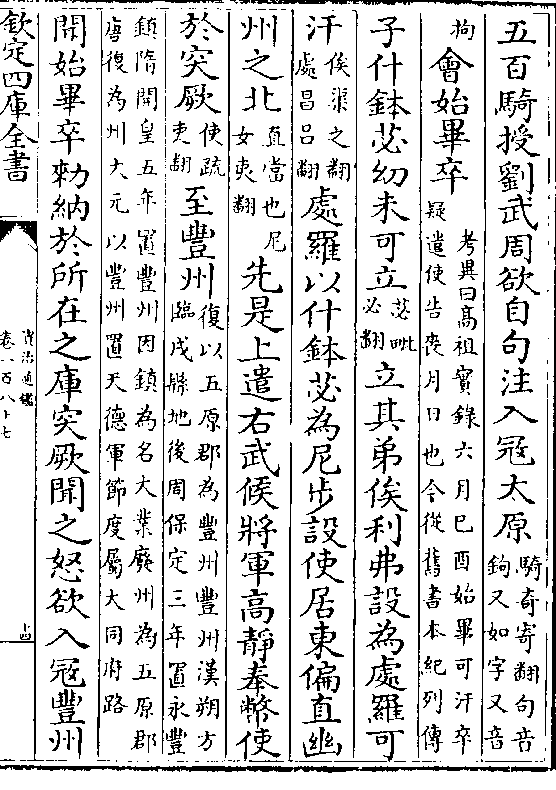 五百騎授劉武周欲自句注入冦太原騎奇寄翻句音鉤又如字又音
拘會始畢卒考異曰髙祖實錄六月己酉始畢可汗卒疑遣使告喪月日也今從舊書本紀列傳
子什鉢苾幼未可立苾毗必翻立其弟俟利弗設為處羅可
汗俟渠之翻處昌呂翻處羅以什鉢苾為尼步設使居東偏直幽
州之北直當也尼女夷翻先是上遣右武候將軍高靜奉幣使
於突厥使疏吏翻至豐州復以五原郡為豐州豐州漢朔方臨戎縣地後周保定三年置永豐
鎮隋開皇五年置豐州因鎮為名大業廢州為五原郡唐復為州大元以豐州置天德軍節度屬大同府路
聞始畢卒勑納於所在之庫突厥聞之怒欲入冦豐州
欽定四庫全書
資治通鑑
卷一百八十七
十四